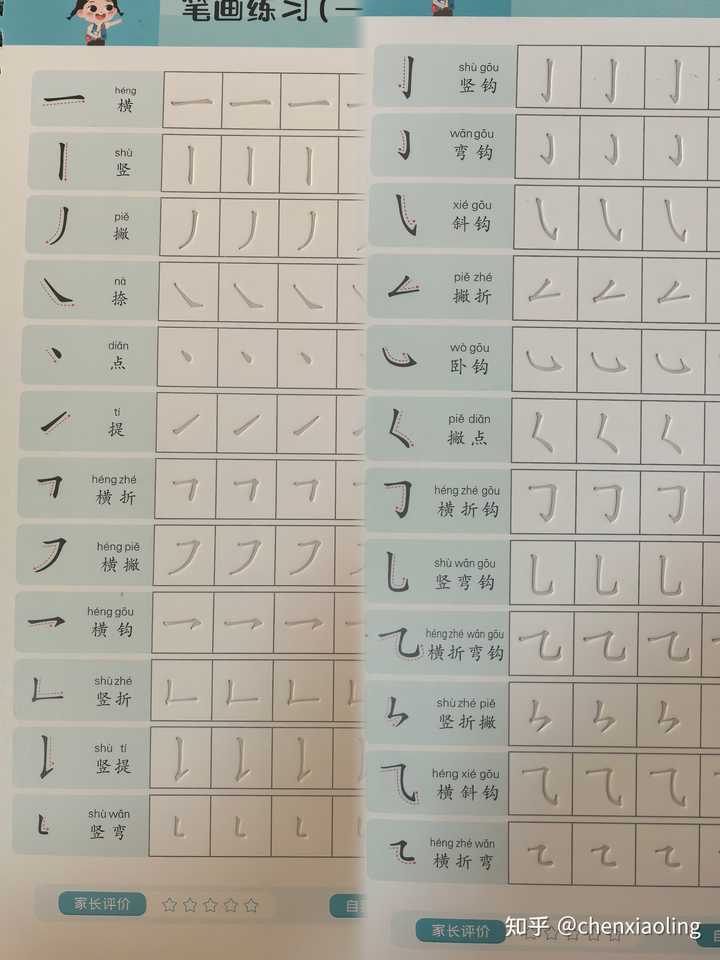 笔画练习(一
héng
横
shù
竖
piě
撇
nà
捺
diǎn
点
tí
提
héng zhé
横折
héng piě
横撇
héng gōu
横钩
shù zhé
竖折
shù tí
竖提
shù wān
竖弯
家长评价
自
shù gōu
竖钩
wān gōu
弯钩
xié gōu
斜钩
piě zhé
撇折
wò gōu
卧钩
piě diǎn
撇点
héng zhé gōu
横折钩
shù wān gōu
竖弯钩
héng zhé wān gōu
横折弯钩
shù zhé piě
竖折撇
héng xié gōu
横斜钩
héng zhé wān
横折弯
家长评价
自
知乎 @chenxiaoling